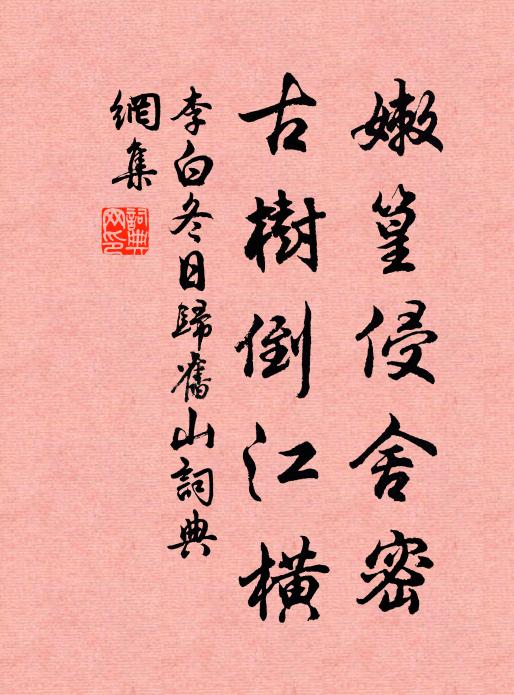 嫩篁侵舍密
古樹倒江橫
李白冬日歸舊山詞典
網集
詞典
网印